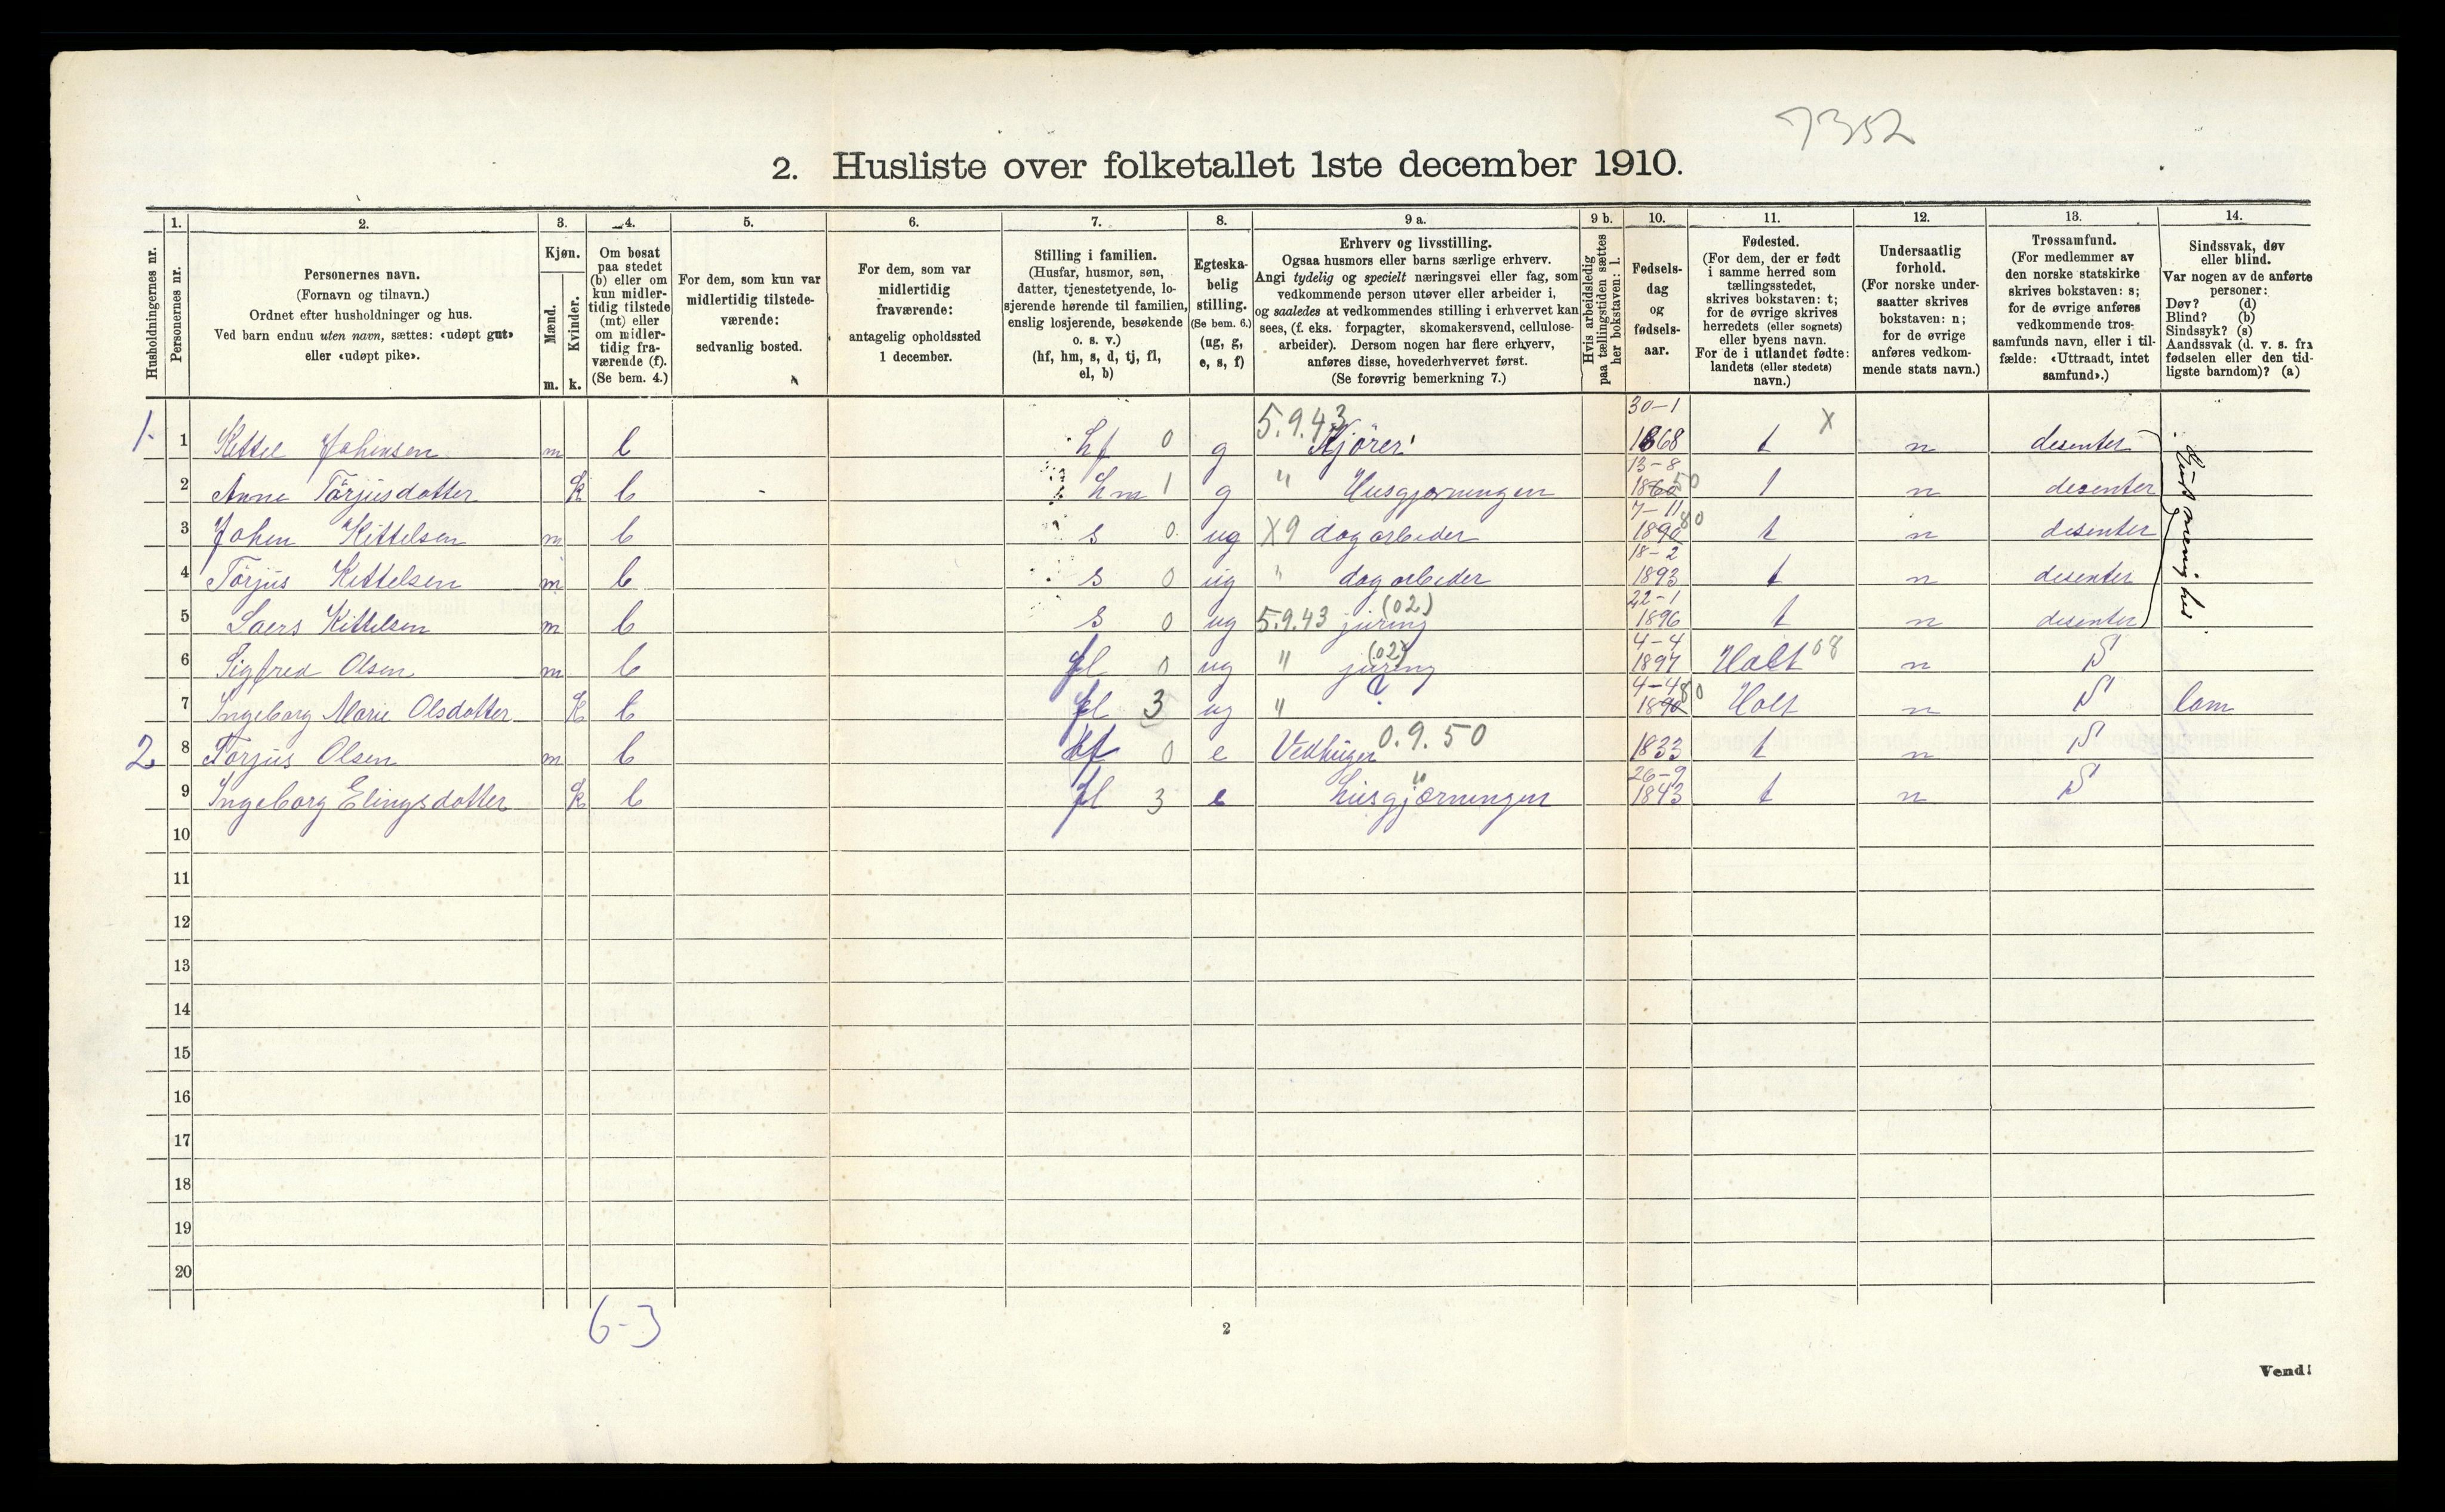 7352
2. Husliste over folketallet 1ste december 1910.
Husholdningernes nr.
1.
Personernes nr.
2.
Personernes navn.
(Fornavn og tilnavn.)
Ordnet efter husholdninger og hus.
Ved barn endnu uten navn, sættes: «udøpt gut»
eller «udøpt pike».
3.
Kjøn.
Mænd.
Kvinder.
m. k.
4.
Om bosat
paa stedet
(b) eller om
kun midler-
tidig tilstede
(mt) eller
om midler-
tidig fra-
værende (f).
(Se bem. 4.)
5.
For dem, som kun var
midlertidig tilstede-
værende:
sedvanlig bosted.
6.
For dem, som var
midlertidig
fraværende:
antagelig opholdssted
1 december.
7.
Stilling i familien.
(Husfar, husmor, søn,
datter, tjenestetyende, lo-
sjerende hørende til familien,
enslig losjerende, besøkende
o. s. v.)
(hf, hm, s, d, tj, fl,
el, b)
8.
Egteska-
belig
stilling.
(Se bem. 6.)
(ug, g,
e, s, f)
9 a.
Erhverv og livsstilling.
Ogsaa husmors eller barns særlige erhverv.
Angi tydelig og specielt næringsvei eller fag, som
vedkommende person utøver eller arbeider i,
og saaledes at vedkommendes stilling i erhvervet kan
sees, (f. eks. forpagter, skomakersvend, cellulose-
arbeider). Dersom nogen har flere erhverv,
anføres disse, hovederhvervet først.
(Se forøvrig bemerkning 7.)
9 b.
Hvis arbeidsledig
paa tællingstiden sættes
her bokstaven: l.
10.
Fødsels-
dag
og
fødsels-
aar.
11.
Fødested.
(For dem, der er født
i samme herred som
tællingsstedet,
skrives bokstaven: t;
for de øvrige skrives
herredets (eller sognets)
eller byens navn.
For de i utlandet fødte:
landets (eller stedets)
navn.)
12.
Undersaatlig
forhold.
(For norske under-
saatter skrives
bokstaven: n;
for de øvrige
anføres vedkom-
mende stats navn.)
13.
Trossamfund.
(For medlemmer av
den norske statskirke
skrives bokstaven: s;
for de øvrige anføres
vedkommende tros-
samfunds navn, eller i til-
fælde: «Uttraadt, intet
samfund».)
14.
Sindssvak, døv
eller blind.
Var nogen av de anførte
personer:
Døv? (d)
Blind? (b)
Sindssyk? (s)
Aandssvak (d. v. s. fra
fødselen eller den tid-
ligste barndom)? (a)
1. 1 Kettel Johensen m b hf 0 g 5.9.43 Kjörer 30-1 1868 t X n desenter
2 Anne Tørjusdatter k b hm 1 g " Husgjorningen 13-8 1860 50 t n desenter
3 Johen Kittelsen m b s 0 ug X9 dagarbeder 7-11 1890 80 t n desenter
4 Törjus Kittelsen m b s 0 ug " dagarbeder 18-2 1893 t n desenter
5 Laers Kittelsen m b s 0 ug 5.9.43 juring (02) 22-1 1896 t n desenter
6 Sigfred Olsen m b fl 0 ug " juring (02) 4-4 1897 Holt 08 n S
7 Ingeborg Marie Olsdatter k b fl 3 ug " 4-4 1890 80 Holt n S lam
2 8 Torjus Olsen m b hf 0 e Vedhuger 0.9.50 1833 t n S
9 Ingeborg Elingsdatter k b fl 3 e " husgjørningen 26-9 1843 t n S
10
11
12
13
14
15
16
17
18
19
20
6-3
2
Vend!